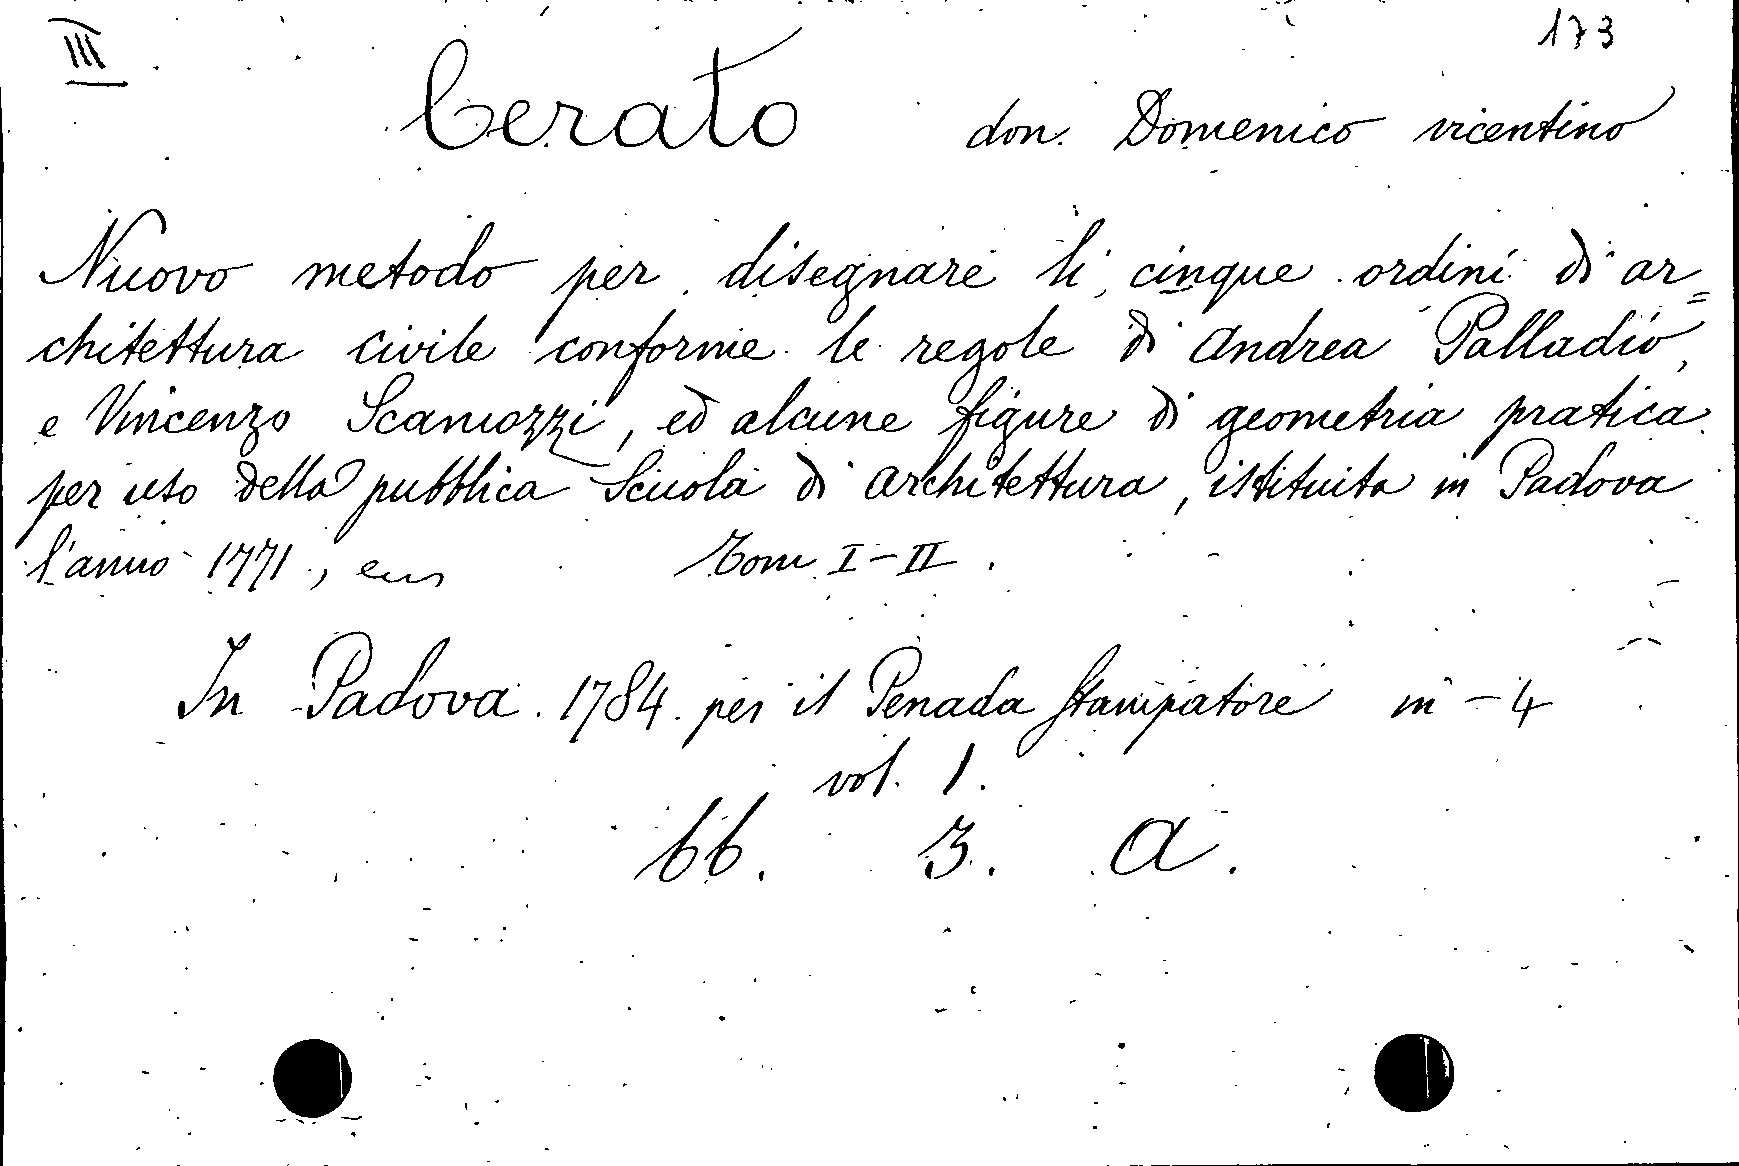 III 173
Cerato don. Domenico vicentino
Nuovo metodo per disegnare li cinque ordini di ar=
chitettura civile conforme le regole di Andrea Palladio,
e Vincenzo Scamozzi, ed alcune figure di geometria pratica
per uso della pubblica Scuola di Architettura, istituita in Padova
l'anno 1771, Tom I-II.
In Padova. 1784. per il Penada Stampatore in-4
vol. 1.
66. 3. a.